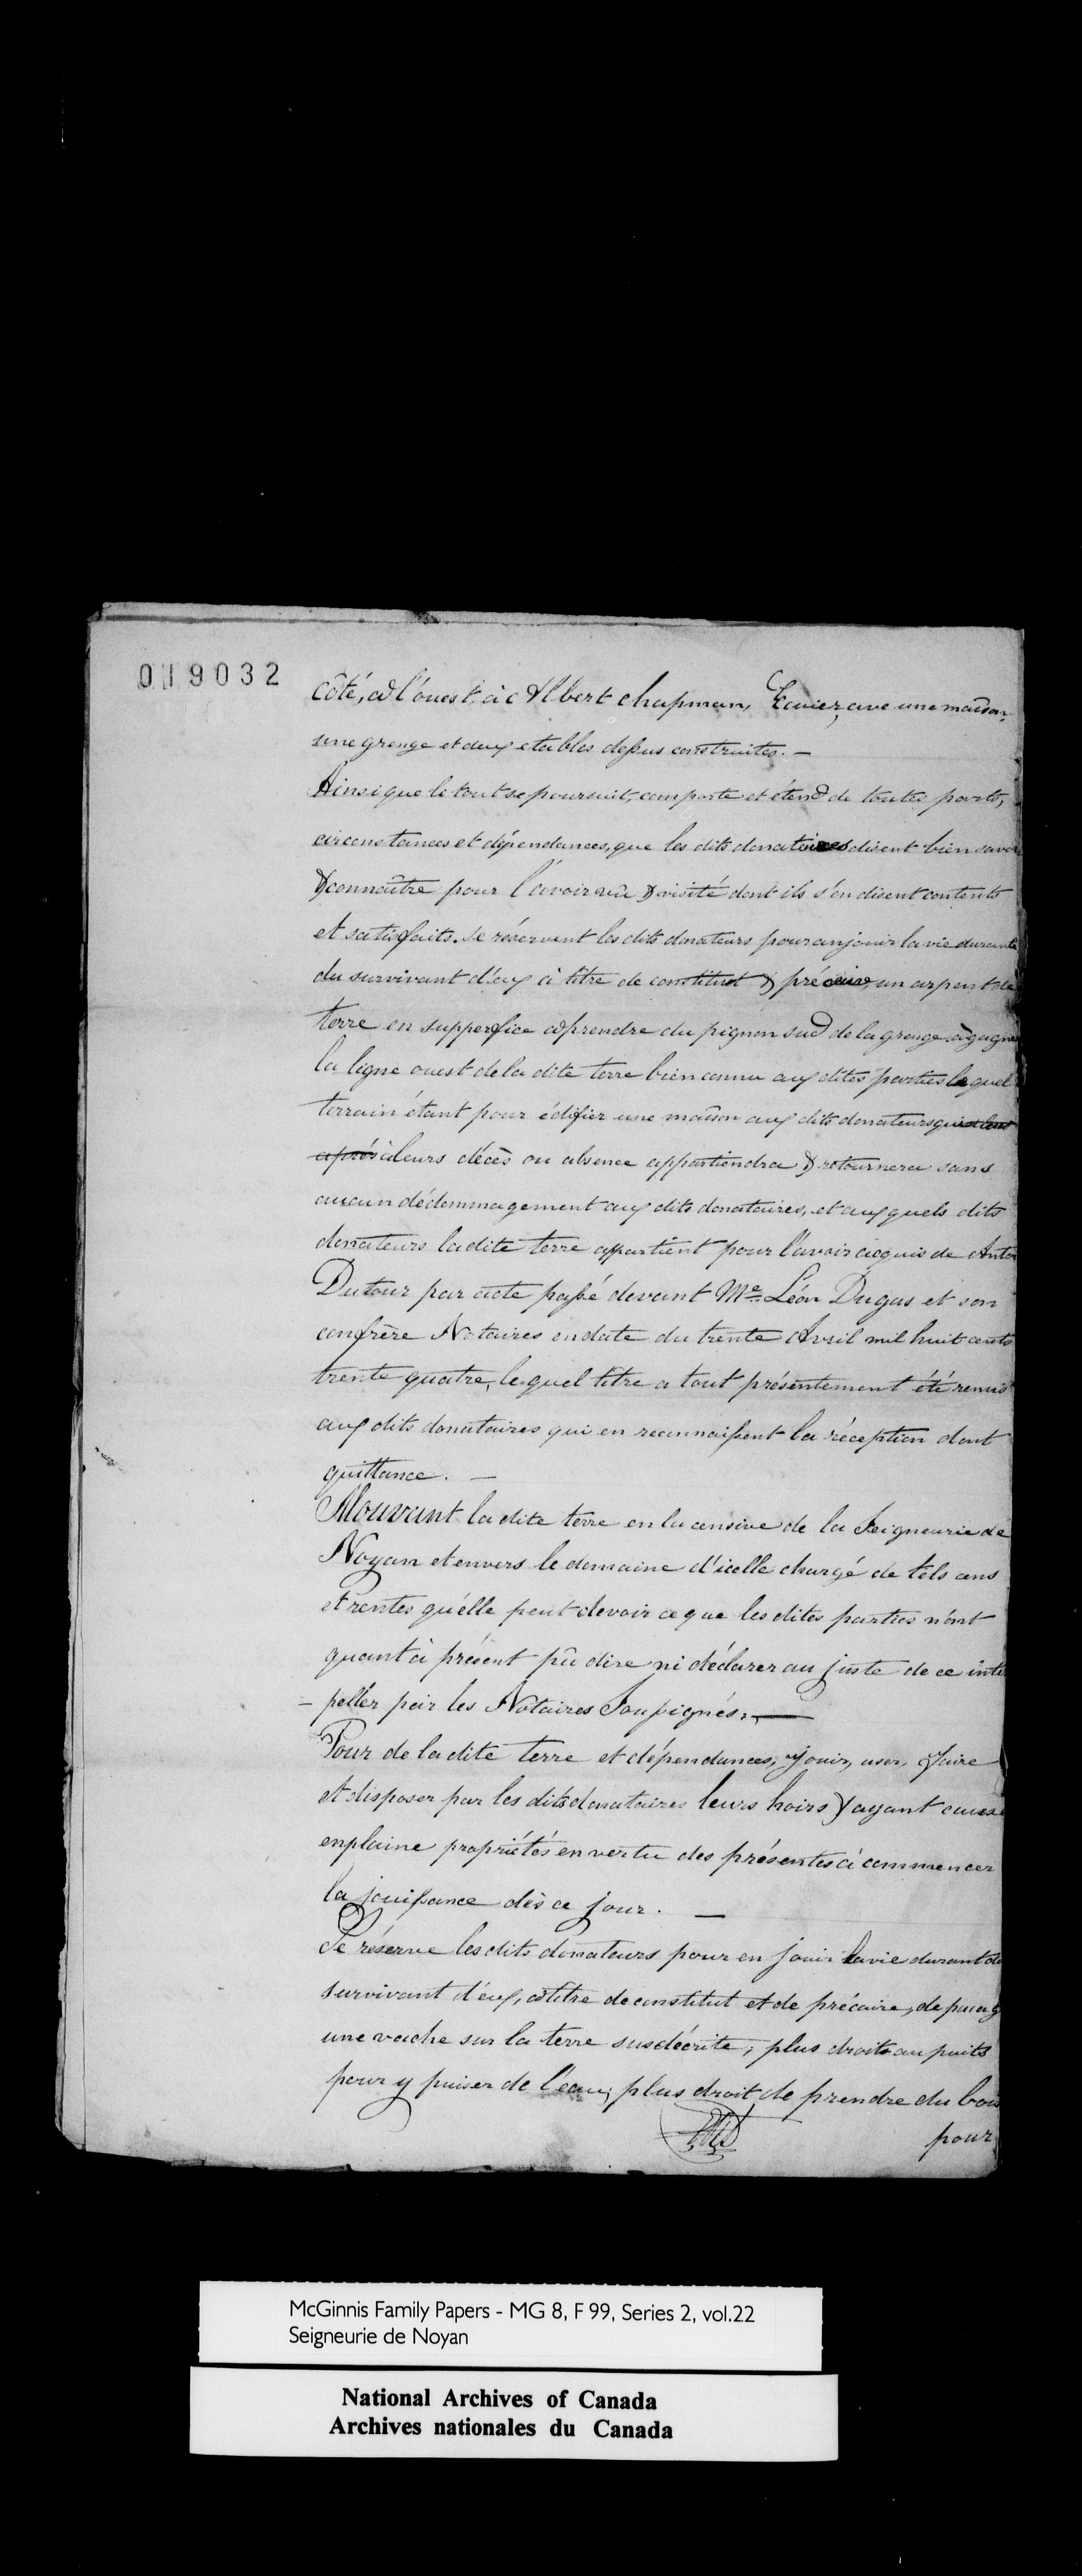 019032
côté, à l'ouest, à Albert Chapman, Ecuier, ave une maison,
une grenge et deux etables dessus construites. —
Ainsi que le tout se poursuit, comporte et étend de toutes parts,
circonstances et dépendances, que les dits donataires disent bien savoir
& connoître pour l'avoir vû & visité dont ils s'en disent contents
et satisfaits. Se réservent les dits donateurs pour en jouir la vie durante
du survivant d'eux à titre de constitut & précaire, un arpent de
terre en supperfice à prendre du pignon sud de la grenge à gagner
la ligne ouest de la dite terre bien connu aux dites parties lequel
terrain étant pour édifier une maison aux dits donateurs
après à leurs décès ou absence appartiendra & retournera sans
aucun dédommagement aux dits donataires, et auxquels dits
donateurs la dite terre appartient pour l'avoir acquis de Anto
Dutour par acte passé devant Me Léon Dugas et son
confrère Notaires en date du trente Avril mil huit cents
trente quatre, lequel titre a tout présentement été remis
aux dits donataires qui en reconnaissent la réception dont
quittance. —
Mouvant la dite terre en la censive de la Seigneurie de
Noyan et envers le domaine d'icelle chargé de tels cens
et rentes qu'elle peut devoir ce que les dites parties n'ont
quant à présent pû dire ni déclarer au juste de ce inte
- peller par les Notaires Soussignés. —
Pour de la dite terre et dépendances, jouir, user, faire
et disposer par les dits donataires leurs hoirs & ayant cause
en plaine propriétés en vertu des présentes à commencer
la jouissance dès ce jour. —
Se réserve les dits donateurs pour en jouir la vie durant du
survivant d'eux, à titre de constitut et de précaire, de pacag
une vache sur la terre susdécrite; plus droit au puits
pour y puiser de l'eau; plus droit de prendre du bois
pour
McGinnis Family Papers - MG 8, F 99, Series 2, vol.22
Seigneurie de Noyan
National Archives of Canada
Archives nationales du Canada